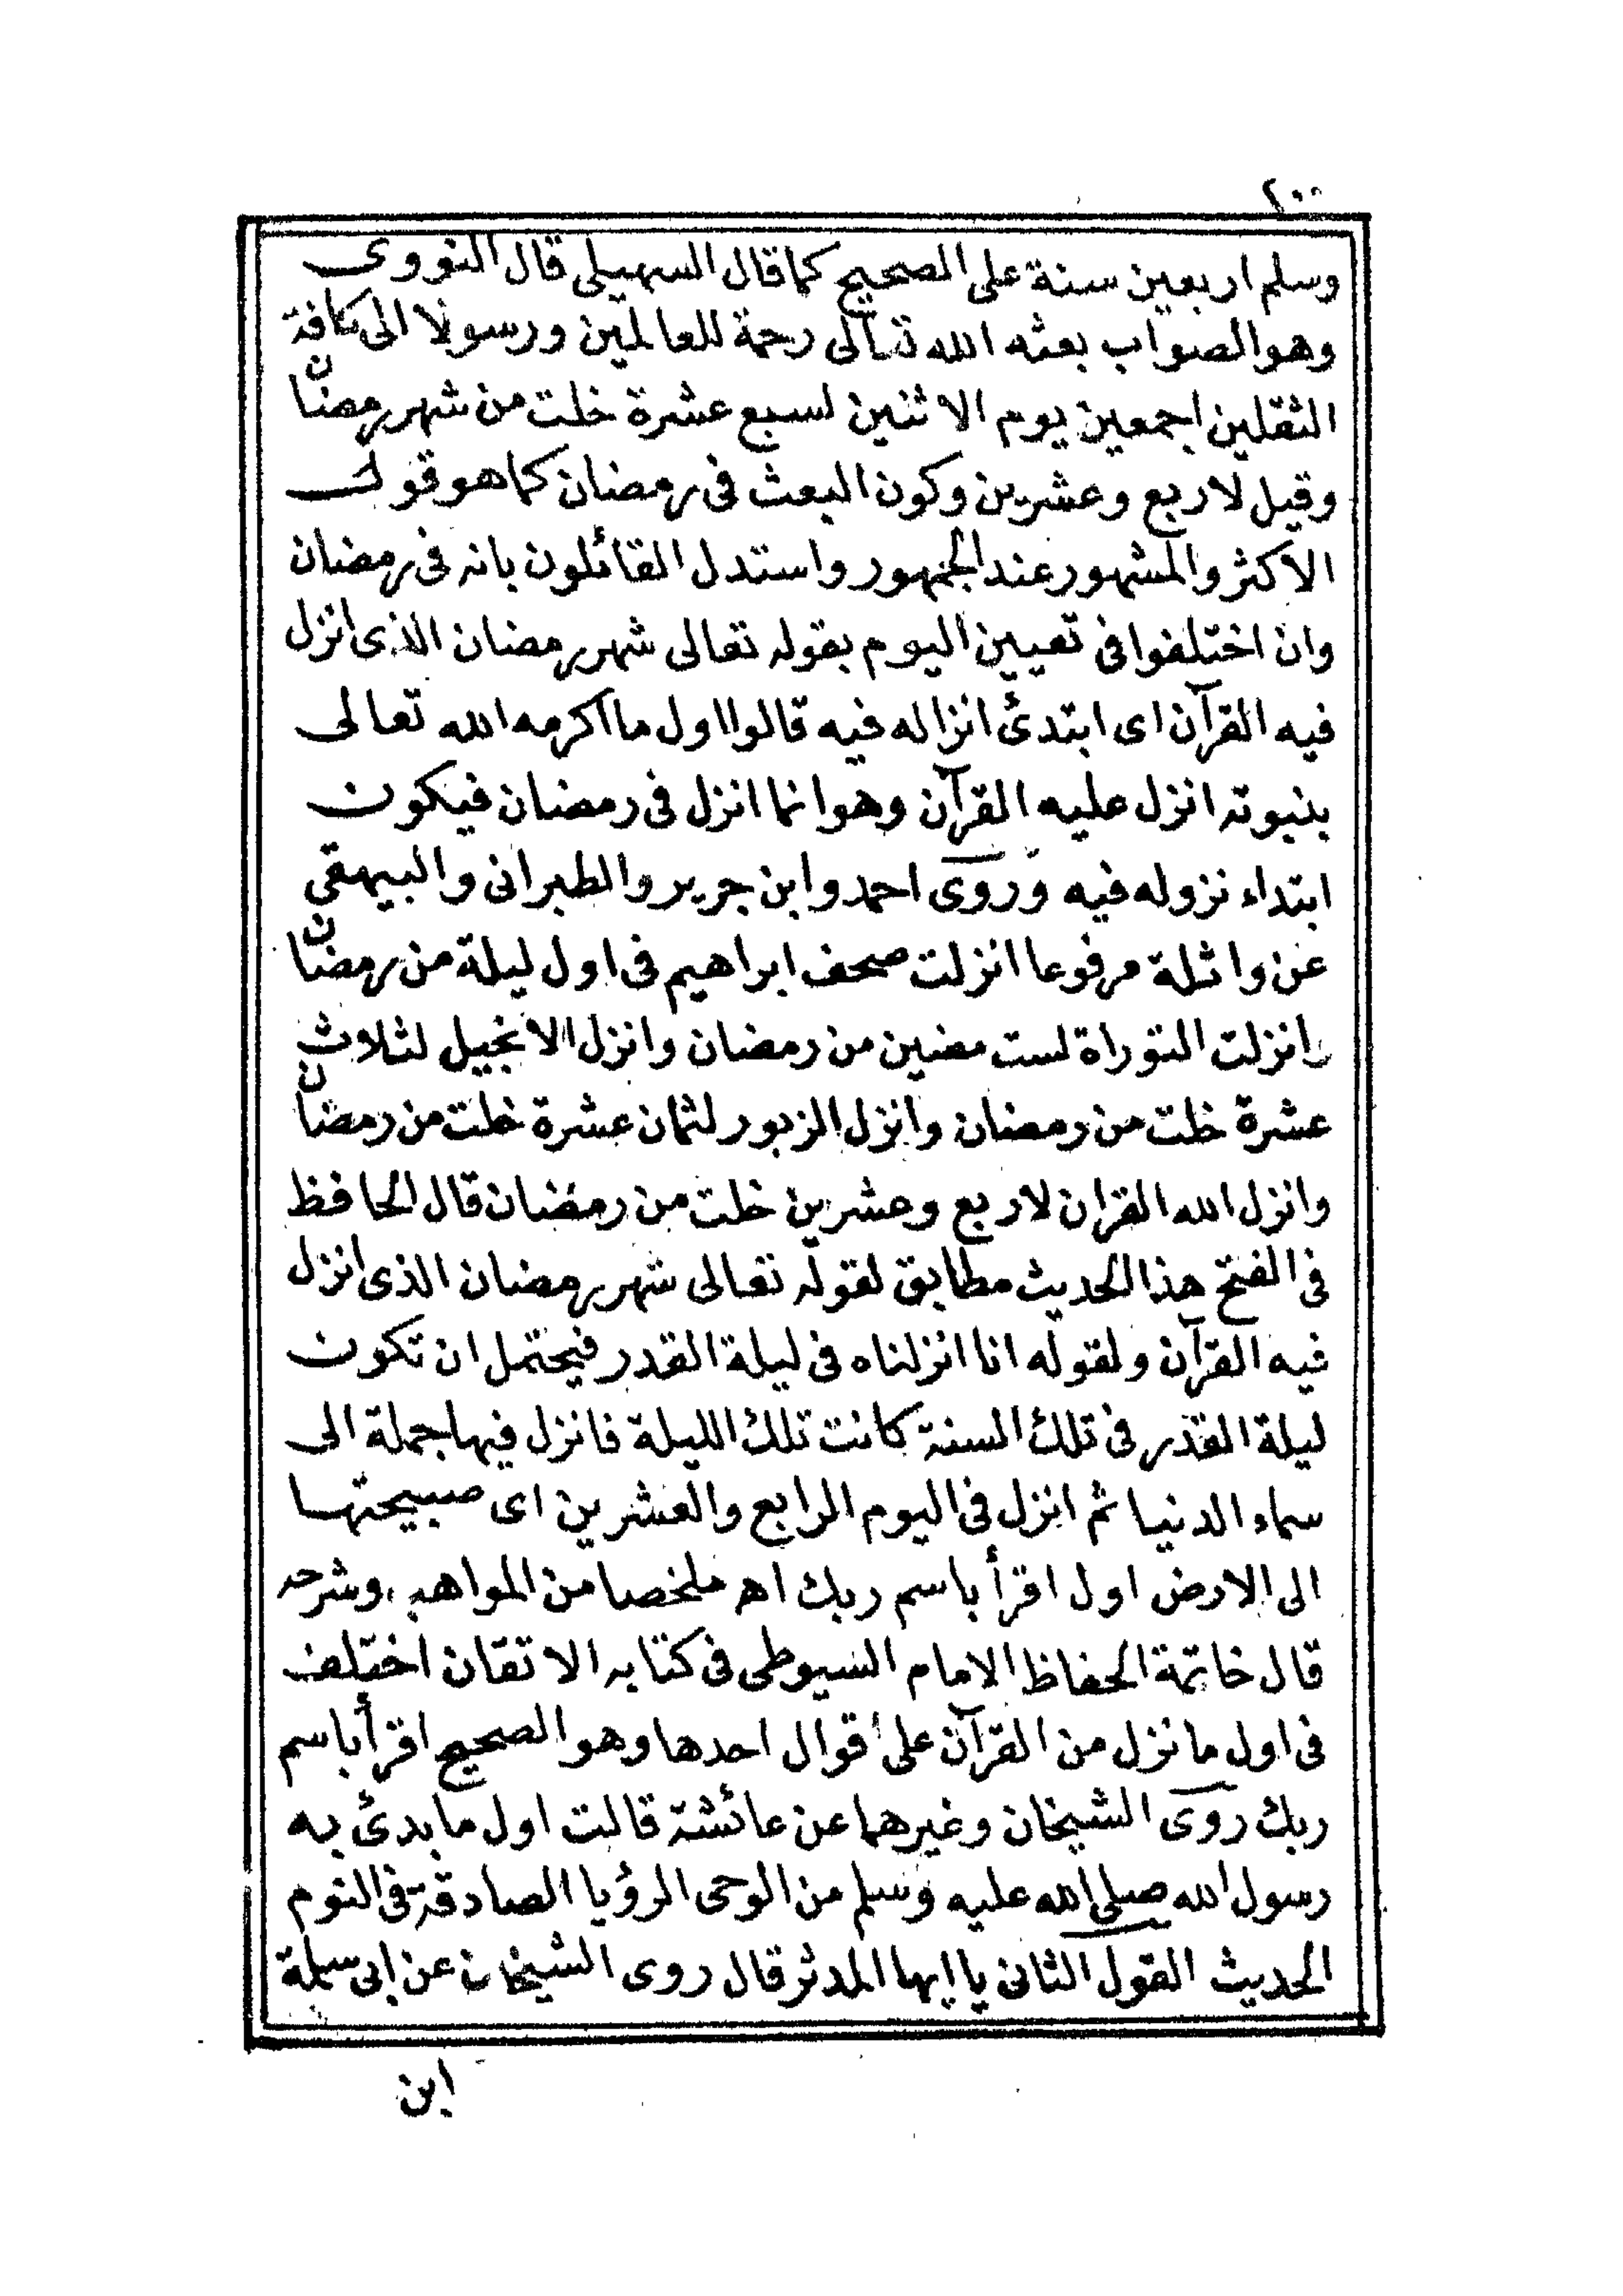 ٢٠٠
وسلم اربعين سنة على الصحيح كما قال السهيلى قال النووى
وهو الصواب بعثه الله تعالى رحمة للعالمين ورسولا الى كافة
الثقلين اجمعين يوم الاثنين لسبع عشرة خلت من شهر رمضان
وقيل لاربع وعشرين وكون البعث فى رمضان كما هو قول
الاكثر والمشهور عند الجمهور واستدل القائلون بانه فى رمضان
وان اختلفوا فى تعيين اليوم بقوله تعالى شهر رمضان الذى انزل
فيه القرآن اى ابتدئ انزاله فيه قالوا اول ما اكرمه الله تعالى
بنبوته انزل عليه القرآن وهو انما انزل فى رمضان فيكون
ابتداء نزوله فيه وروى احمد وابن جرير والطبرانى والبيهقى
عن واثلة مرفوعا انزلت صحف ابراهيم فى اول ليلة من رمضان
وانزلت التوراة لست مضين من رمضان وانزل الانجيل لثلاث
عشرة خلت من رمضان وانزل الزبور لثمان عشرة خلت من رمضان
وانزل الله القران لاربع وعشرين خلت من رمضان قال الحافظ
فى الفتح هذا الحديث مطابق لقوله تعالى شهر رمضان الذى انزل
فيه القرآن ولقوله انا انزلناه فى ليلة القدر فيحتمل ان تكون
ليلة القدر فى تلك السنة كانت تلك الليلة فانزل فيها جملة الى
سماء الدنيا ثم انزل فى اليوم الرابع والعشرين اى صبيحتها
الى الارض اول اقرأ باسم ربك اه ملخصا من المواهب وشرحه
قال خاتمة الحفاظ الامام السيوطى فى كتابه الاتقان اختلف
فى اول ما نزل من القرآن على اقوال احدها وهو الصحيح اقرأ باسم
ربك روى الشيخان وغيرهما عن عائشة قالت اول ما بدئ به
رسول الله صلى الله عليه وسلم من الوحى الرؤيا الصادقة فى النوم
الحديث القول الثانى يا ايها المدثر قال روى الشيخان عن ابى سلمة
ابن